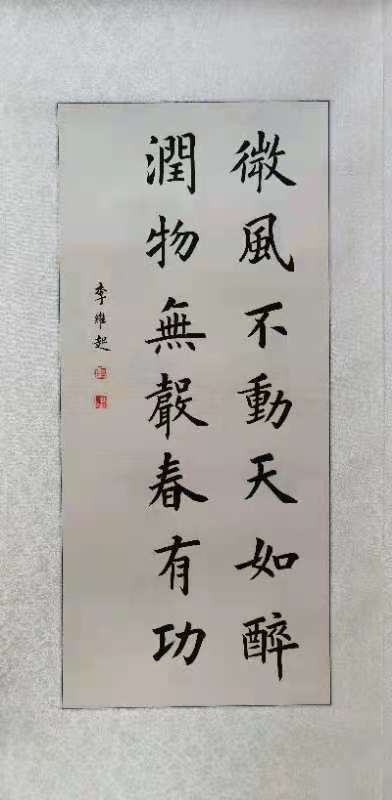 微風不動天如醉
潤物無聲春有功
李維起